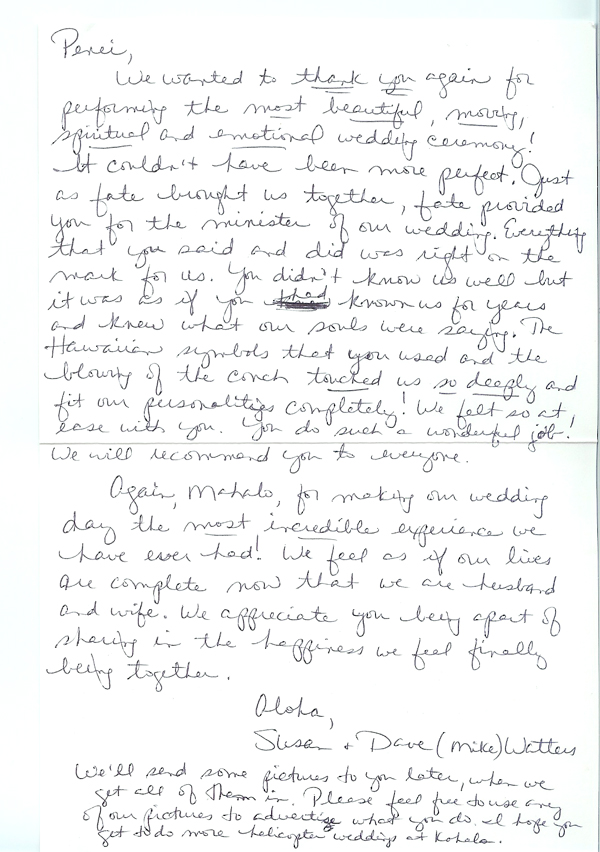 Perei,
We wanted to thank you again for
performing the most beautiful, moving,
spiritual and emotional wedding ceremony!
It couldn't have been more perfect. Just
as fate brought us together, fate provided
you for the minister of our wedding. Everything
that you said and did was right on the
mark for us. You didn't know us well but
it was as if you known us for years
and knew what our souls were saying. The
Hawaiian symbols that you used and the
blowing of the conch touched us so deeply and
fit our personalities completely! We felt so at
ease with you. You do such a wonderful job!
We will recommend you to everyone.
Again, Mahalo, for making our wedding
day the most incredible experience we
have ever had! We feel as if our lives
are complete now that we are husband
and wife. We appreciate you being apart of
sharing in the happiness we feel finally
being together.
Aloha,
Susan + Dave (Mike) Watters
We'll send some pictures to you later, when we
get all of them in. Please feel free to use any
of our pictures to advertise what you do. I hope you
get to do more helicopter weddings at Kohala.